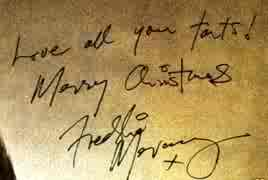 Love all you tarts!
Merry Christmas
Freddie
Mercury
x